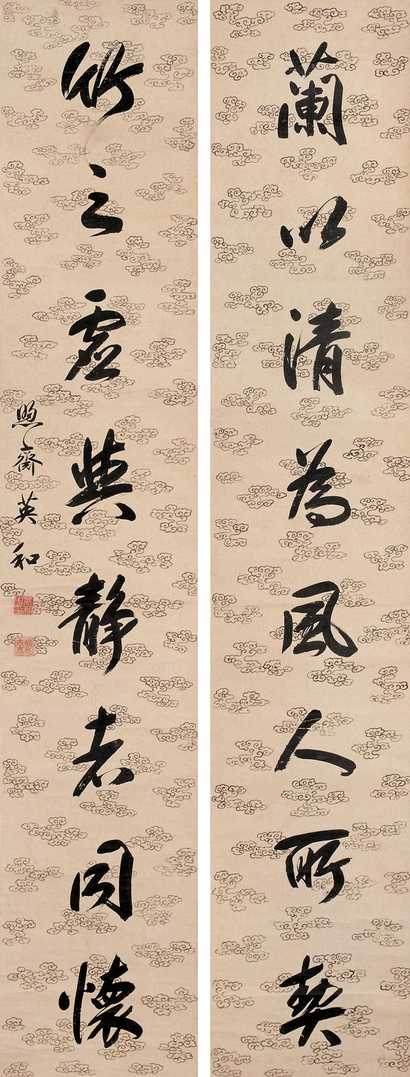 蘭以清為風人所契
竹之虛與靜者同懷
煦齋英和